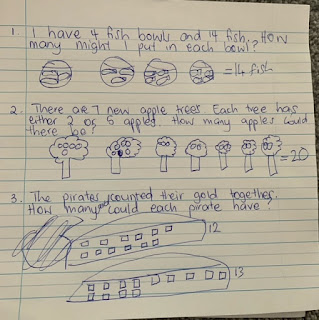 1. I have 4 fish bowls and 14 fish. How
many might I put in each bowl?
= 14 fish
2. There are 7 new apple trees. Each tree has
either 2 or 5 apples. How many apples could
there be?
= 20
3. The pirates counted their gold together.
How many could each pirate have?
12
13